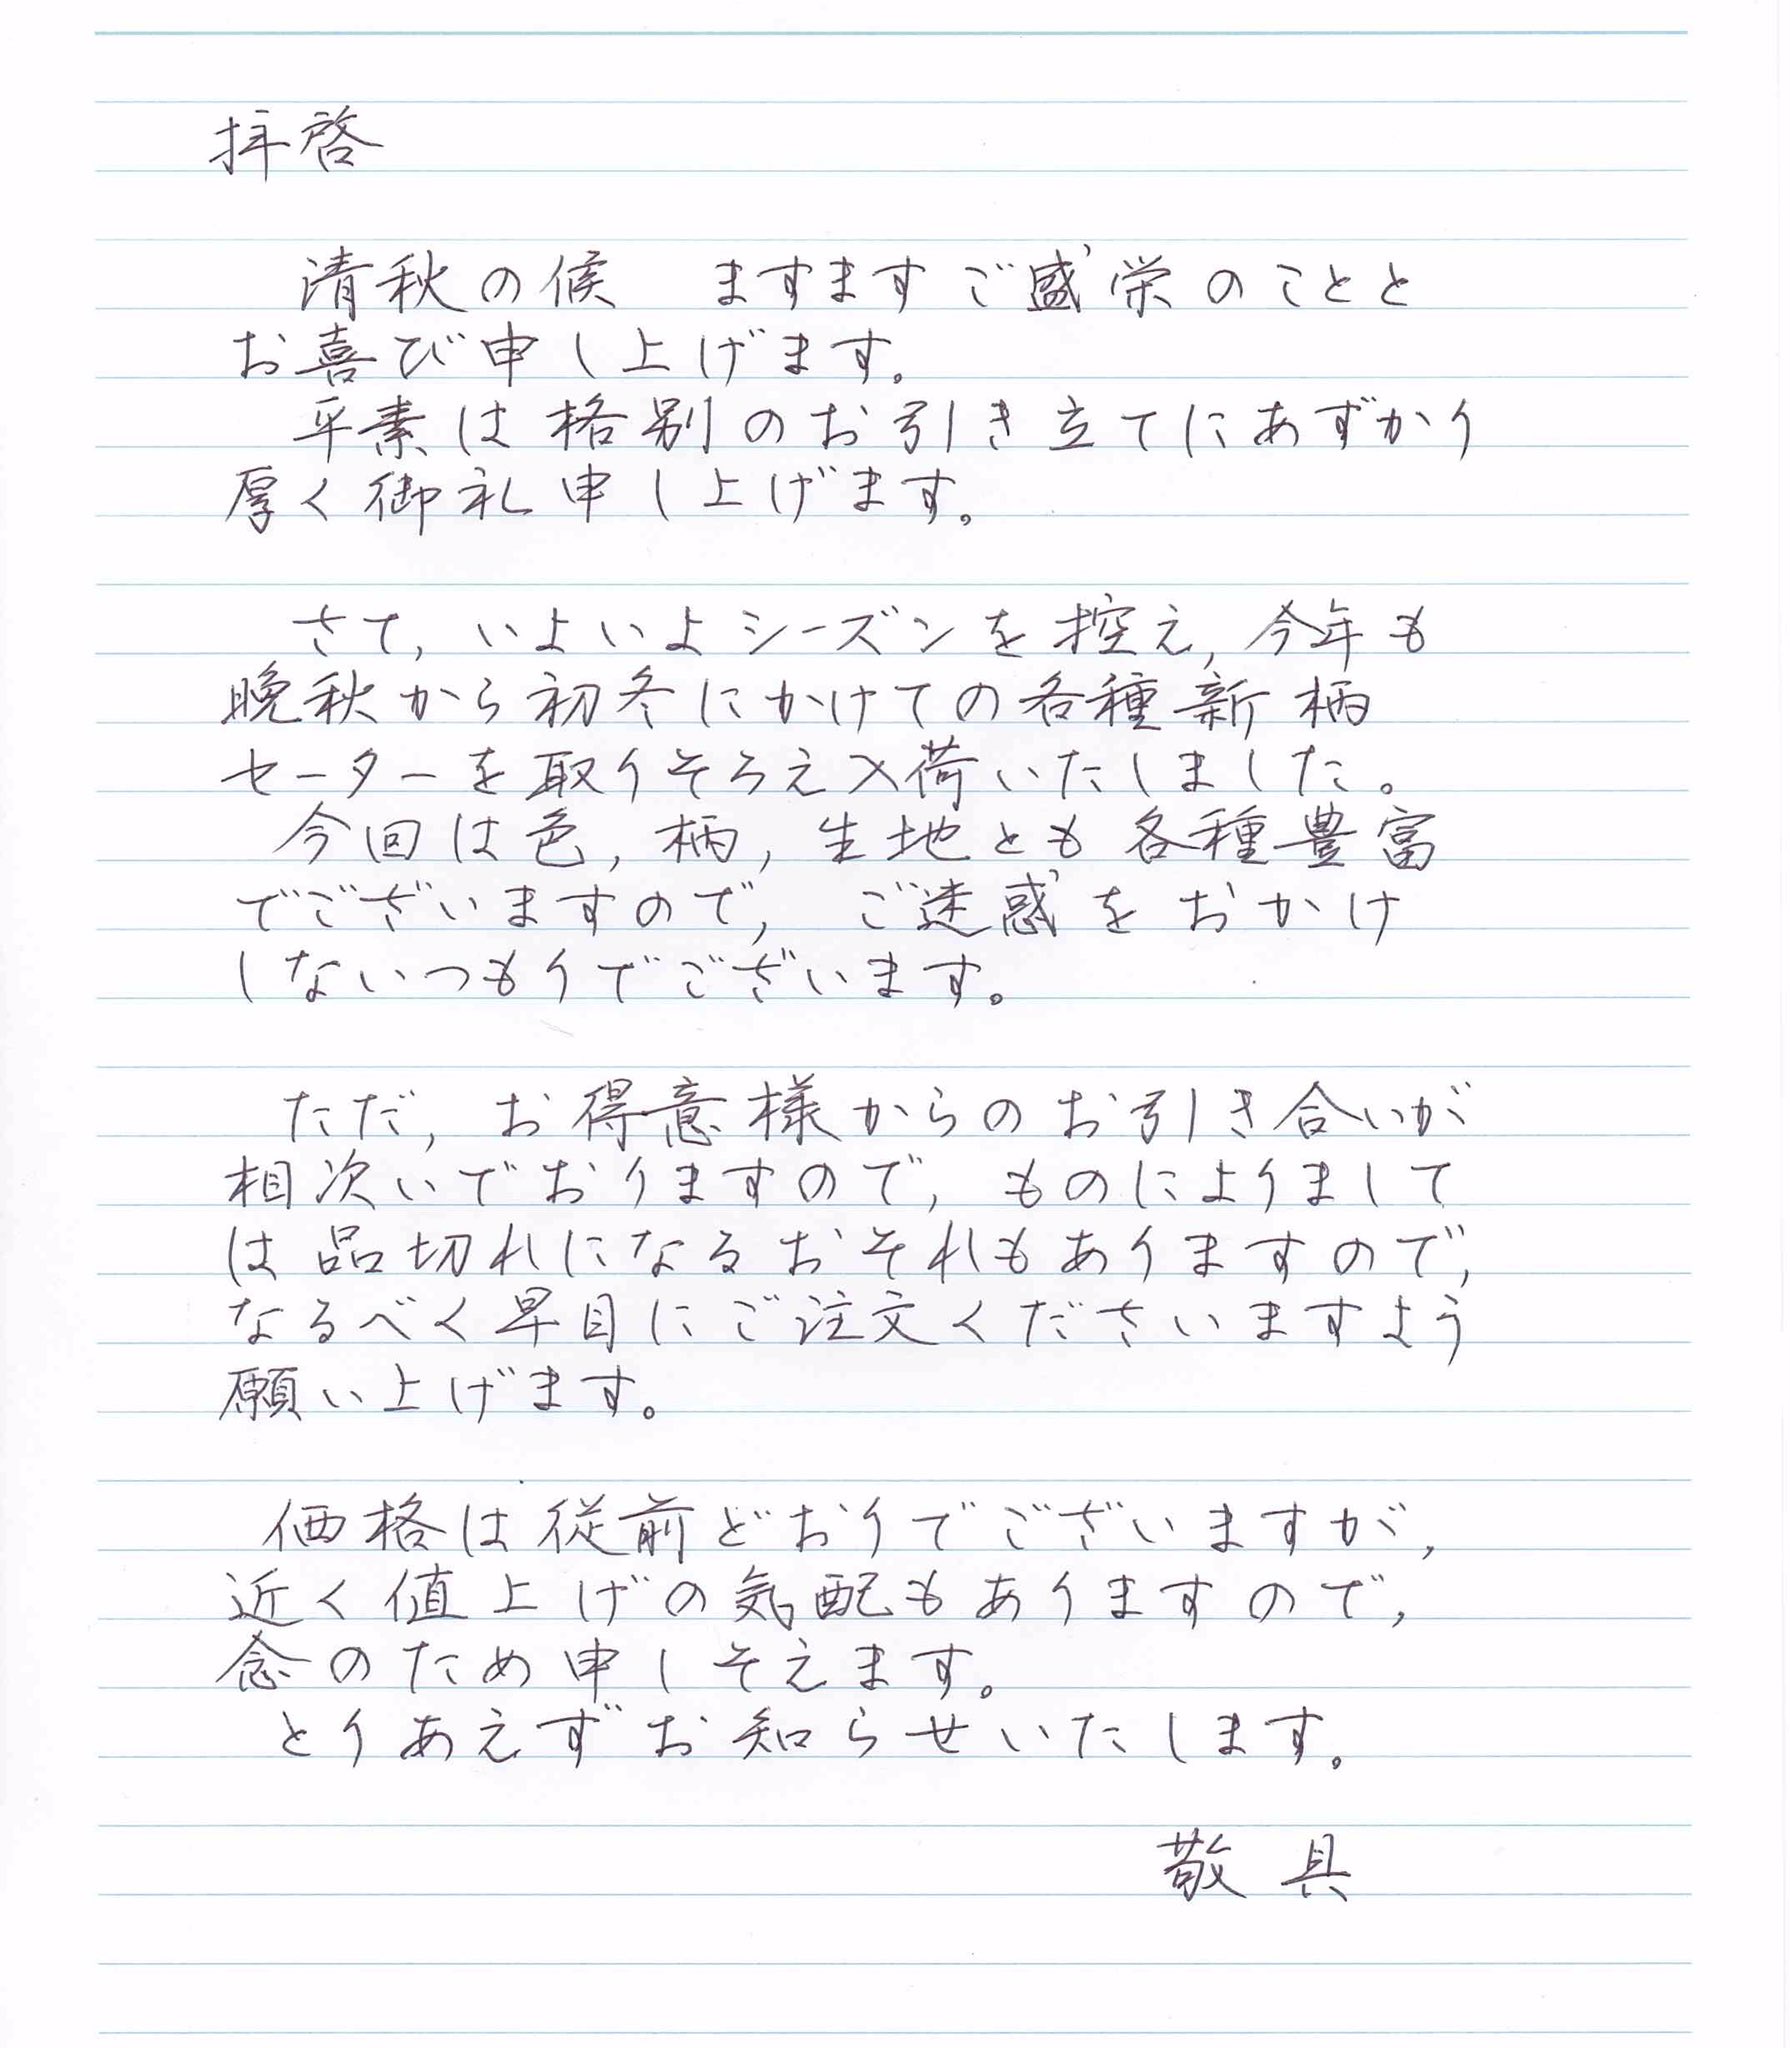 拝啓
清秋の候　ますますご盛栄のことと
お喜び申し上げます。
平素は格別のお引き立てにあずかり
厚く御礼申し上げます。
さて，いよいよシーズンを控え，今年も
晩秋から初冬にかけての各種新柄
セーターを取りそろえ入荷いたしました。
今回は色，柄，生地とも各種豊富
でございますので，ご迷惑をおかけ
しないつもりでございます。
ただ，お得意様からのお引き合いが
相次いでおりますので，ものによりまして
は品切れになるおそれもありますので，
なるべく早目にご注文くださいますよう
願い上げます。
価格は従前どおりでございますが，
近く値上げの気配もありますので，
念のため申しそえます。
とりあえずお知らせいたします。
敬具